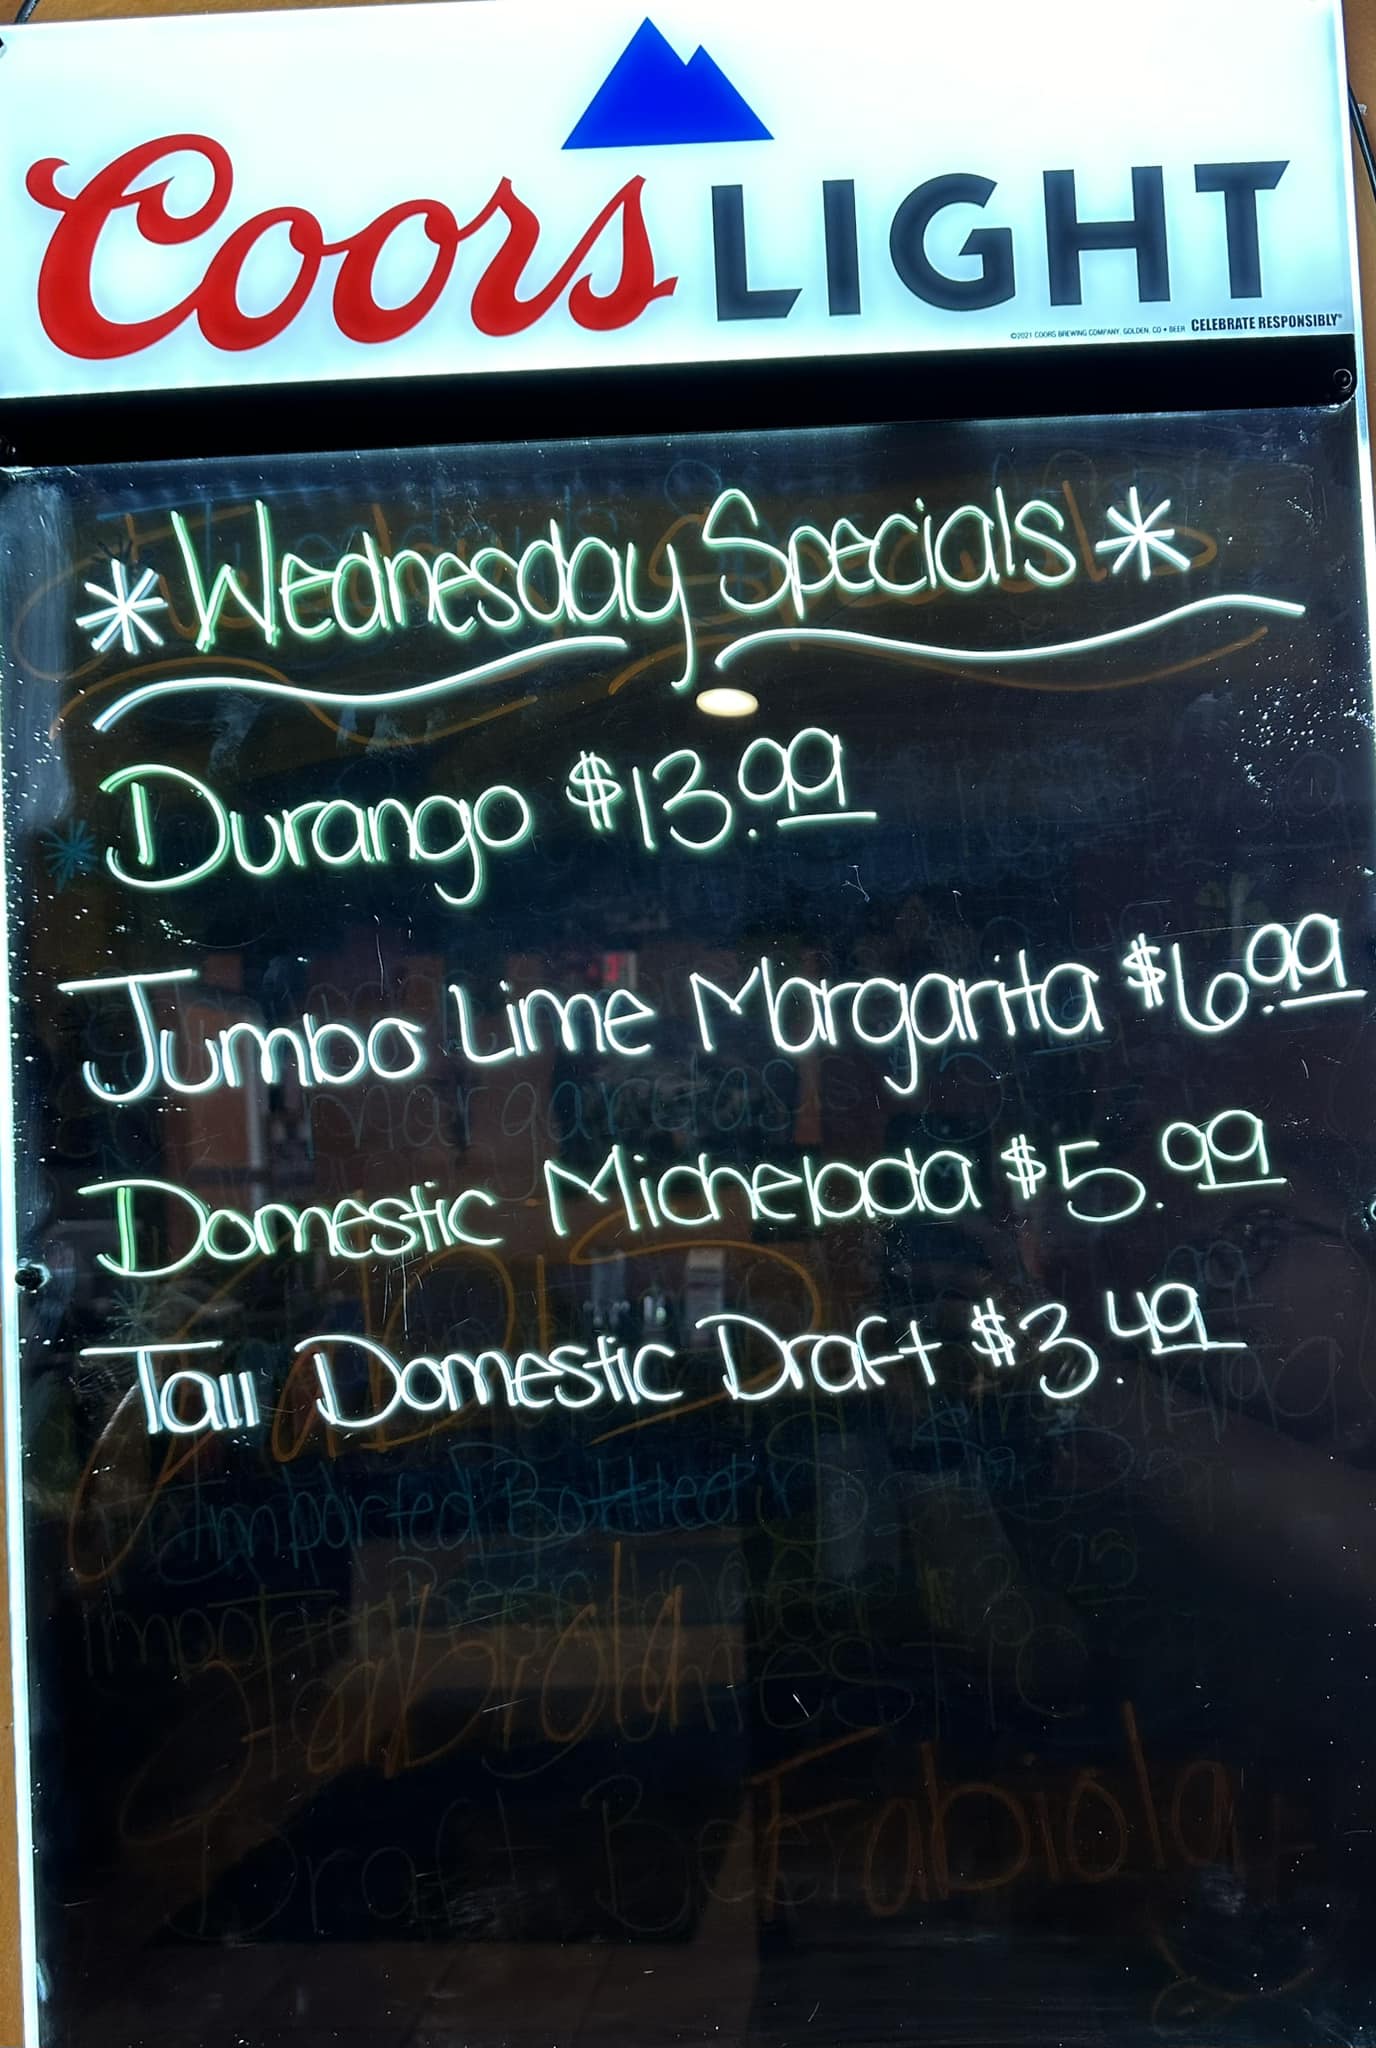 Coors LIGHT
©2021 COORS BREWING COMPANY, GOLDEN, CO • BEER CELEBRATE RESPONSIBLY®
*Wednesday Specials*
Durango $13.99
Jumbo Lime Margarita $6.99
Domestic Michelada $5.99
Tall Domestic Draft $3.49
margaritas
Imported Bottled
Fabiola
Draft Beer Fabiola